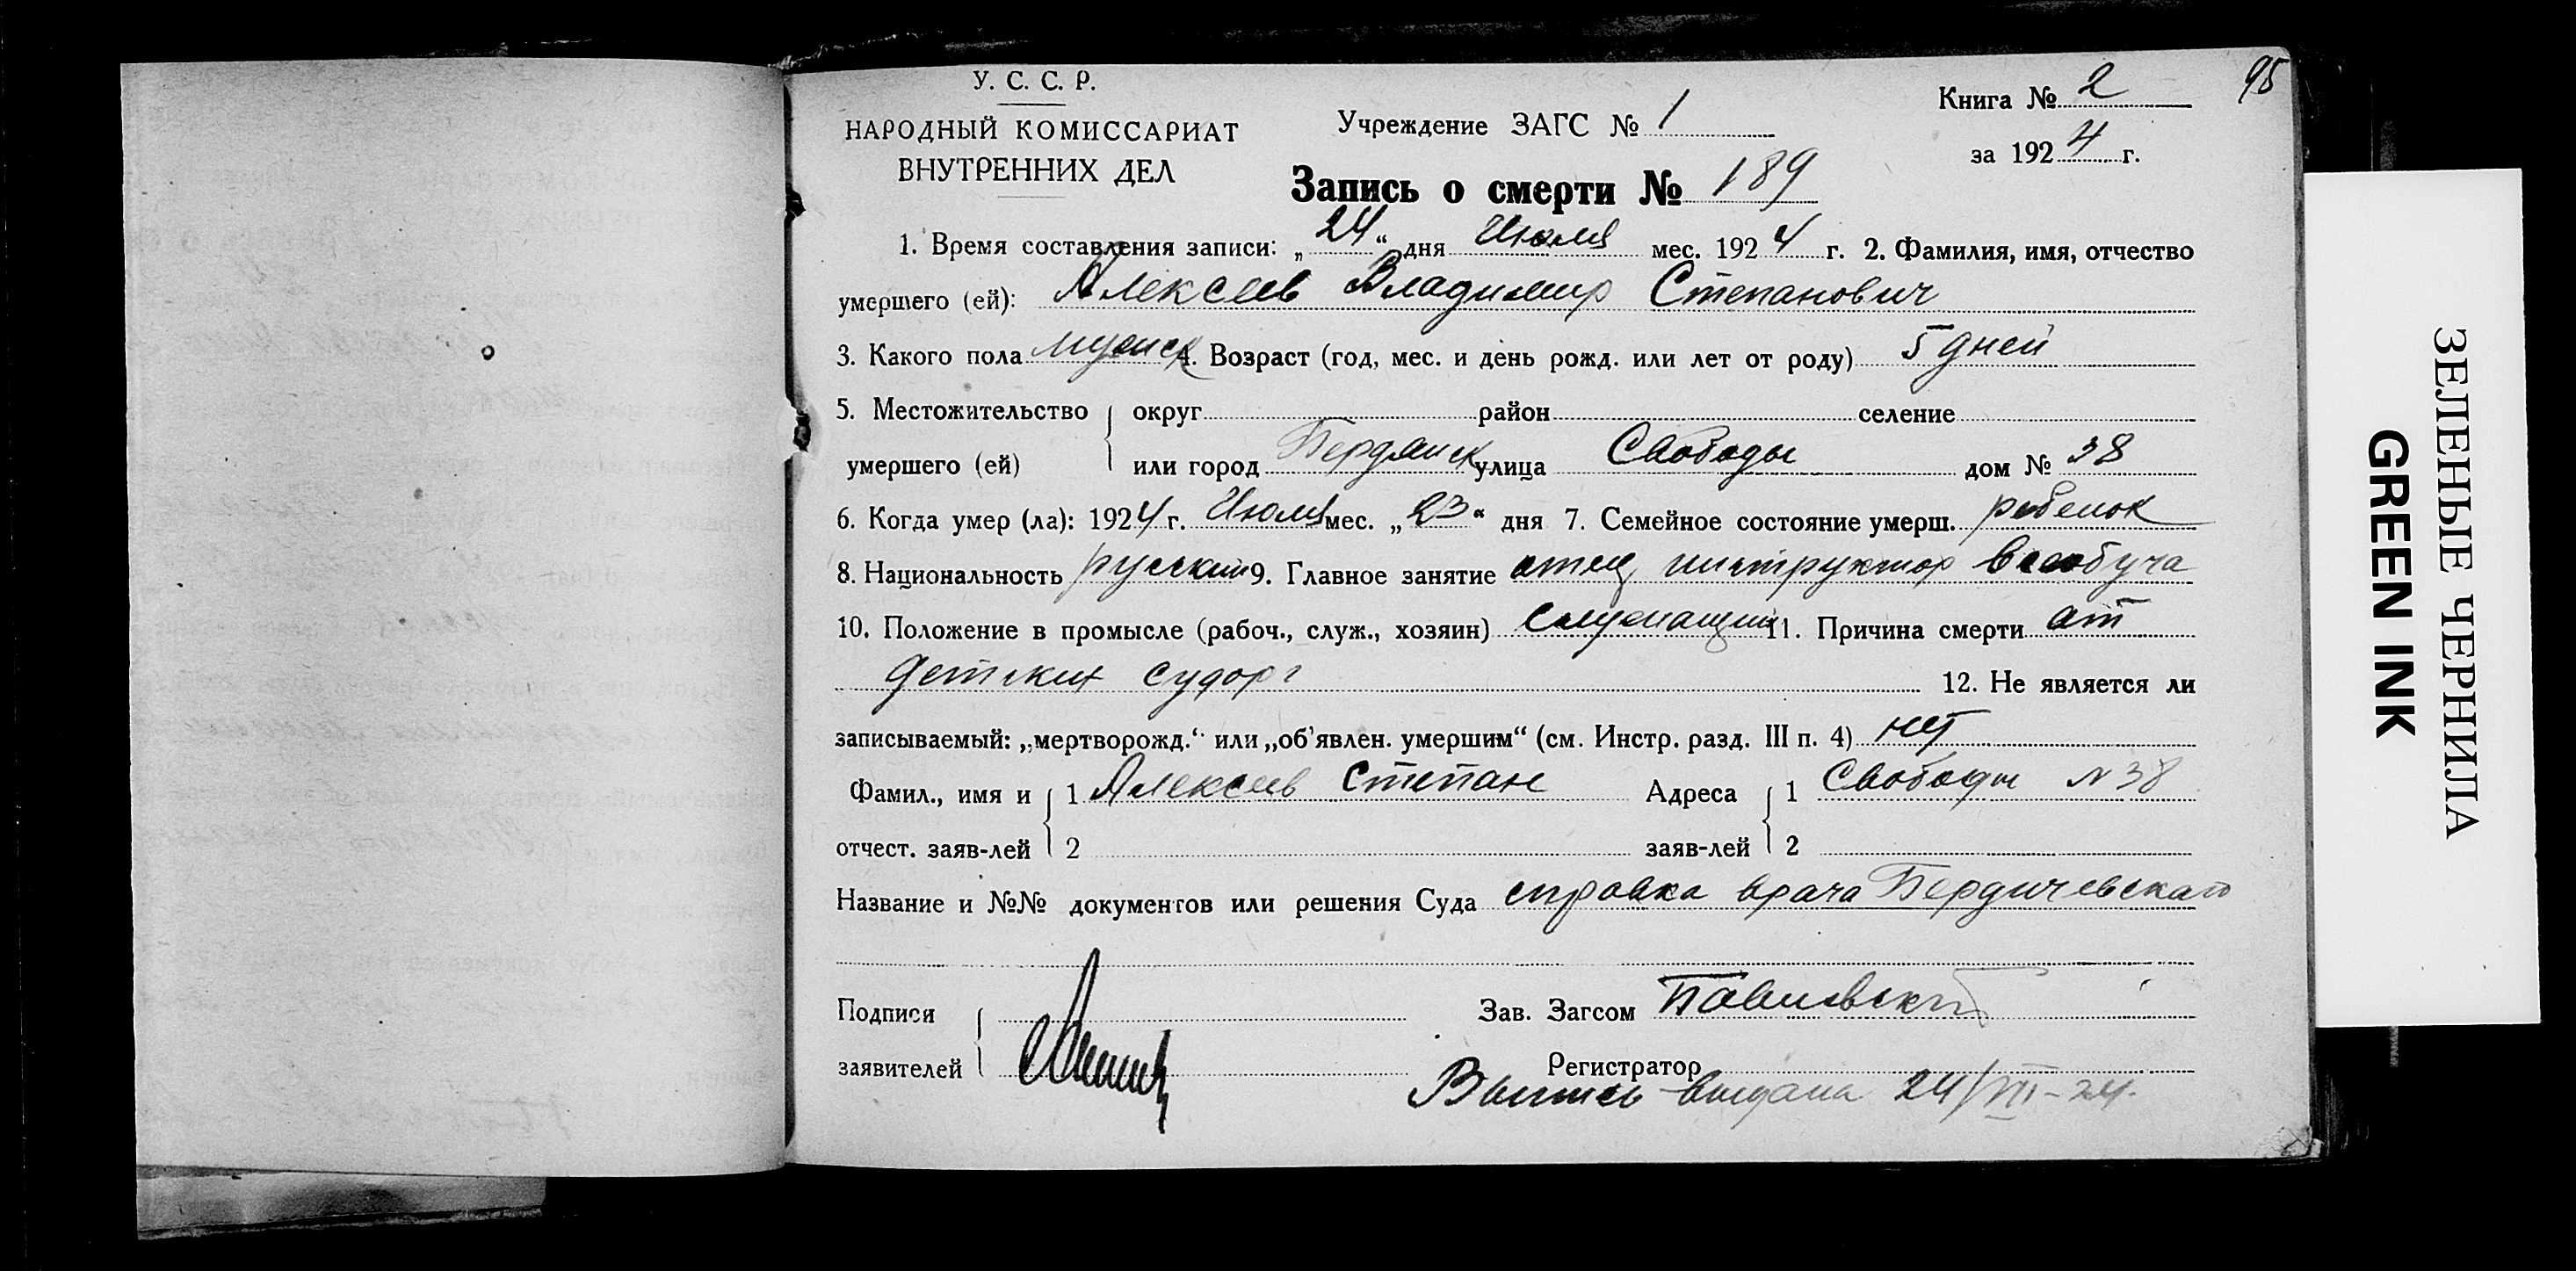 У. С. С. Р.
НАРОДНЫЙ КОМИССАРИАТ
ВНУТРЕННИХ ДЕЛ
Учреждение ЗАГС № 1
Книга № 2
95
за 1924 г.
Запись о смерти № 189
1. Время составления записи: „24“ дня Июля мес. 1924 г. 2. Фамилия, имя, отчество
умершего (ей): Алексеев Владимир Степанович
3. Какого пола мужск 4. Возраст (год, мес. и день рожд. или лет от роду) 5 дней
5. Местожительство { округ район селение
умершего (ей) или город Бердянск улица Свободы дом № 38
6. Когда умер (ла): 1924 г. Июля мес. „23“ дня 7. Семейное состояние умерш. ребенок
8. Национальность русский 9. Главное занятие отец инструктор всеобуча
10. Положение в промысле (рабоч., служ., хозяин) служащий 11. Причина смерти от
детских судорг 12. Не является ли
записываемый: „мертворожд.“ или „об’явлен. умершим“ (см. Инстр. разд. III п. 4) нет
Фамил., имя и { 1 Алексеев Степан Адреса { 1 Свободы N 38
отчест. заяв-лей 2 заяв-лей 2
Название и №№ документов или решения Суда справка врача Бердичевскаго
Подписи { Зав. Загсом
заявителей Регистратор
Выпись выдана 24/VII-24.
ЗЕЛЕНЫЕ ЧЕРНИЛА
GREEN INK